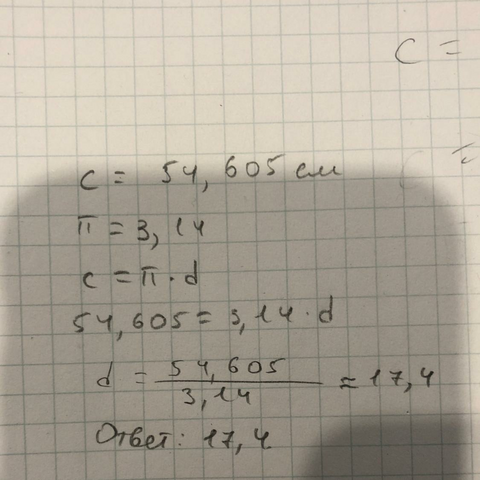 C =
C = 54,605 см
π = 3,14
C = π · d
54,605 = 3,14 · d
d = 54,605 / 3,14 ≈ 17,4
Ответ: 17,4